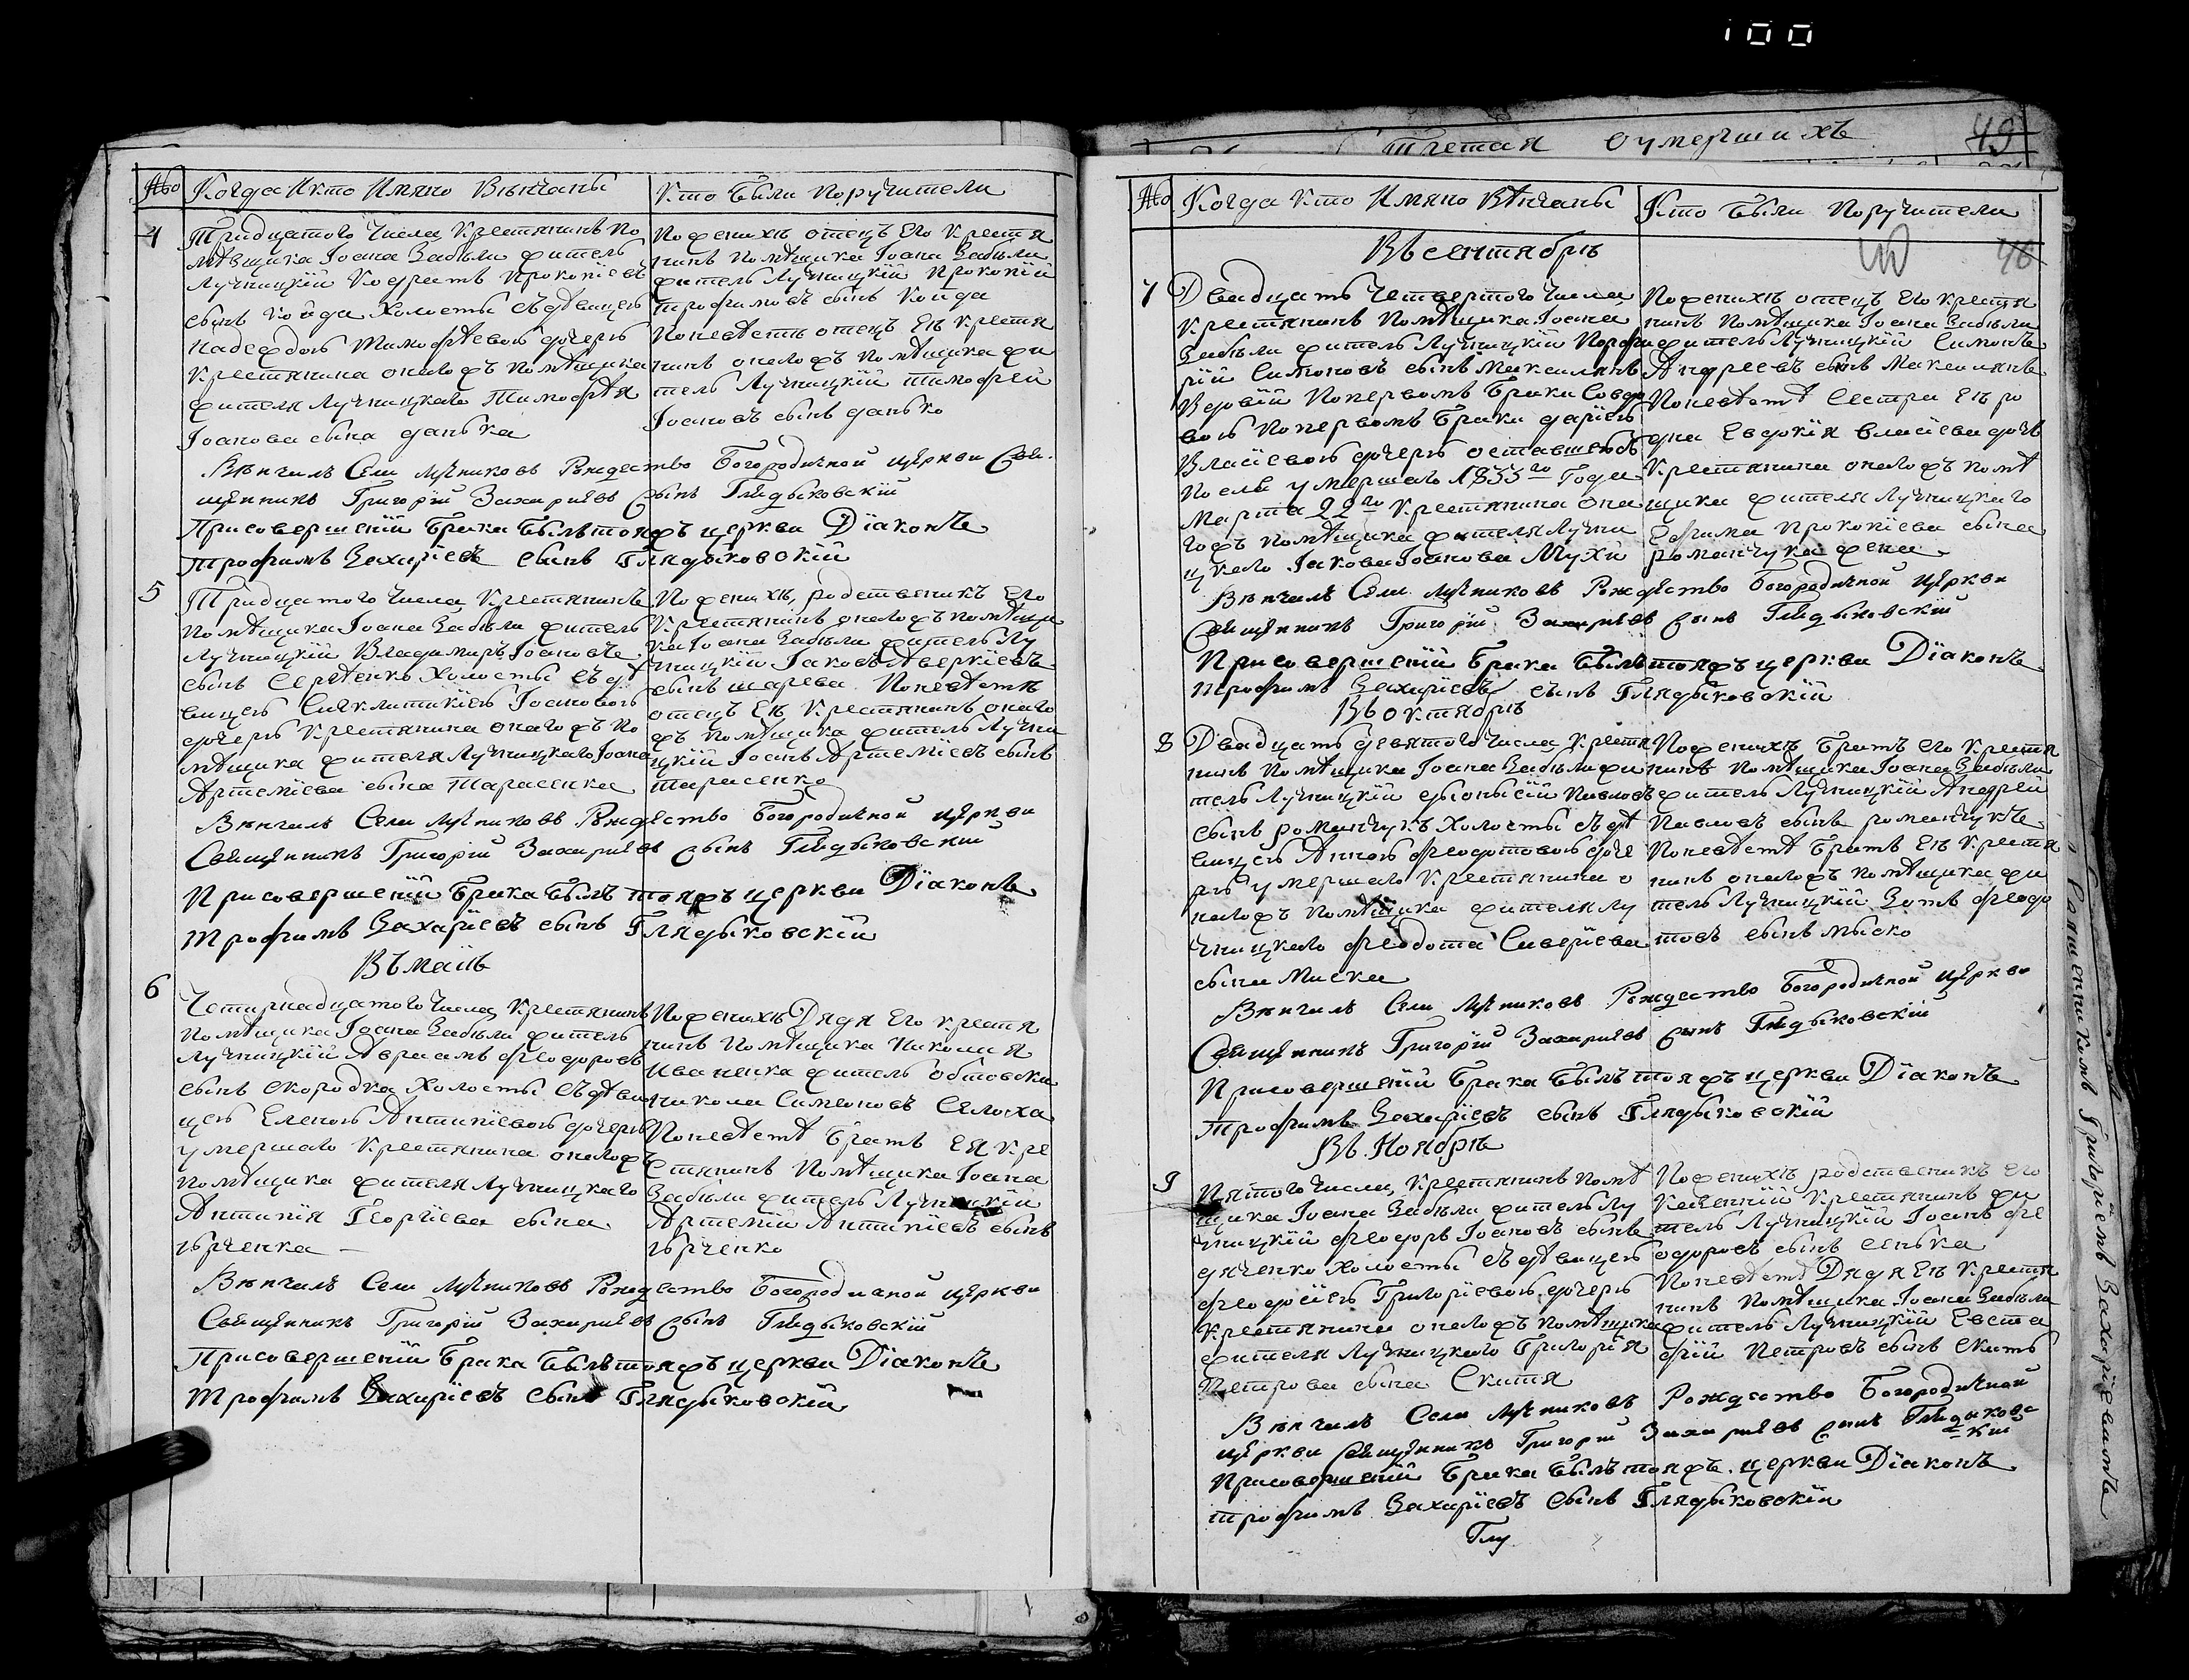 100
третая о умершихъ
49
№ Когда и кто имяно венчаны
Кто были поручители
4 Тридцатого числа крестянинъ по
мѣщика Iоана Забѣлы житель
Лучницкiй Кодратъ Прокопiевъ
сынъ Койда холостъ съ девицею
Надеждою Тимофѣевою дочерю
крестянина оногожъ помѣщика
жителя Лучницкаго Тимофѣя
Iоанова сына Данька
По женихѣ отецъ его крестя
нинъ помѣщика Iоана Забѣлы
житель Лучницкiй Прокопiй
Трофимовъ сынъ Койда
По невѣстѣ отецъ еѣ крестя
нинъ оногожъ помѣщика жи
тель Лучницкiй Тимофей
Iоановъ сынъ Данько
Вѣнчалъ села Лучниковъ Рождество Богородичной церкви Свя-
щенникъ Григорiй Захарiевъ сынъ Глядыковскiй
При совершенiй брака былъ тояжъ церкви Дiаконъ
Трофимъ Захарiевъ сынъ Глядыковскiй
5 Тридцатого числа крестянинъ
помѣщика Iоана Забѣлы житель
Лучницкiй Владимиръ Iоановъ
сынъ Середенко холостъ съ дѣ
вицею Синклитикiею Iоановою
дочерю крестянина оногожъ по
мѣщика жителя Лучницкаго Iоана
Артемiева сына Тарасенка
По женихѣ, родственикъ его
крестянинъ оногожъ помѣщи
ка Iоана Забѣлы житель Лу
чницкiй Iаковъ Аверкiевъ
сынъ Шарева По невѣстѣ
отецъ еѣ крестянинъ оного
жъ помѣщика житель Лучни
цкiй Iоанъ Артемiевъ сынъ
Тарасенко
Вѣнчалъ села Лучниковъ Рождество Богородичной церкви
Священникъ Григорiй Захарiевъ сынъ Глядыковскiй
При совершенiй брака былъ тояжъ церкви Дiаконъ
Трофимъ Захарiевъ сынъ Глядыковскiй
Въ маiѣ
6 Четирнадцатого числа крестянинъ
помѣщика Iоана Забѣлы житель
Лучницкiй Авраамъ Феодоровъ
сынъ Скородка холостъ съ дѣви
цею Еленою Антипiевою дочерю
умершаго крестянина оногожъ
помѣщика жителя Лучницкаго
Антипiя Георгiева сына
Юрченка
По женихѣ Дядя его крестя
нинъ помѣщика Николая
Иваненка житель Обтовски
Никола Симеоновъ Самоха
По невѣстѣ братъ ея кре
стянинъ помѣщика Iоана
Забѣлы житель Лучницкiй
Артемiй Антипiевъ сынъ
Юрченко
Вѣнчалъ села Лучниковъ Рождество Богородичной церкви
Священникъ Григорiй Захарiевъ сынъ Глядыковскiй
При совершенiй брака былъ тояжъ церкви Дiаконъ
Трофимъ Захарiевъ сынъ Глядыковскiй
№ Когда кто имяно вѣнчаны
Кто были поручители
Въ сентябрѣ
46
7 Двадцать четвертого числа
крестянинъ помѣщика Iоана
Забѣлы житель Лучницкiй Порфи
рiй Симоновъ сынъ Максимянъ
вдовiй по первомъ браки со вдо
вою по первомъ браки Дарiею
Власiевою дочерю оставшеюсь
после умершаго 1833го года
Марта 22го крестянина оно
гожъ помѣщика жителя Лучни
цкаго Iакова Iоанова Мухи
По женихѣ отецъ его крестя
нинъ помѣщика Iоана Забѣлы
житель Лучницкiй Симонъ
Андреевъ сынъ Максимянъ
По невѣстѣ сестра еѣ ро
дна Евдокiя Власiева дочь
крестянина оногожъ помѣ
щика жителя Лучницкаго
Ефима Прокопiева сына
Романчука жена
Вѣнчалъ села Лучниковъ Рождество Богородичной церкви
Священникъ Григорiй Захарiевъ сынъ Глядыковскiй
При совершенiй брака былъ тояжъ церкви Дiаконъ
Трофимъ Захарiевъ сынъ Глядыковскiй
Въ октябрѣ
8 Двадцать девятого числа крестя
нинъ помѣщика Iоана Забѣлы жи
тель Лучницкiй Дыонысiй Павловъ
сынъ Романчукъ холостъ съ дѣ
вицею Анною Феодотовою доче
рю умершаго крестянина о
ногожъ помѣщика жителя Лу
чницкаго Феодота Сиверiева
сына Миска
По женихѣ братъ его крестя
нинъ помѣщика Iоана Забѣлы
житель Лучницкiй Андрей
Павловъ сынъ Романчукъ
По невѣстѣ братъ еѣ крестя
нинъ оногожъ помѣщика жи
тель Лучницкiй Зотъ Феодо
товъ сынъ Мыско
Вѣнчалъ села Лучниковъ Рождество Богородичной церкви
Священникъ Григорiй Захарiевъ сынъ Глядыковскiй
При совершенiй брака былъ тояжъ церкви Дiаконъ
Трофимъ Захарiевъ сынъ Глядыковскiй
Въ Ноябрѣ
9 Пятого числа, крестянинъ помѣ
щика Iоана Забѣлы житель Лу
чницкiй Феодоръ Iоановъ сынъ
Дяченко холостъ съ дѣвицею
Феодосiею Григорiевою дочерю
крестянина оногожъ помѣщика
жителя Лучницкаго Григорiя
Петрова сына Скитя
По женихѣ родственикъ его
казеннiй крестянинъ жи
тель Лучницкiй Iоанъ Фе
одоровъ сынъ Сенька
По невѣстѣ Дядя еѣ крестя
нинъ помѣщика Iоана Забѣлы
житель Лучницкiй Евста
фiй Петровъ сынъ Скить
Вѣнчалъ села Лучниковъ Рождество Богородичной
церкви Священникъ Григорiй Захарiевъ сынъ Глядыковс
кiй
При совершенiй брака былъ тояжъ церкви Дiаконъ
Трофимъ Захарiевъ сынъ Глядыковскiй
Глу
Священникомъ Григорiемъ Захарiевымъ